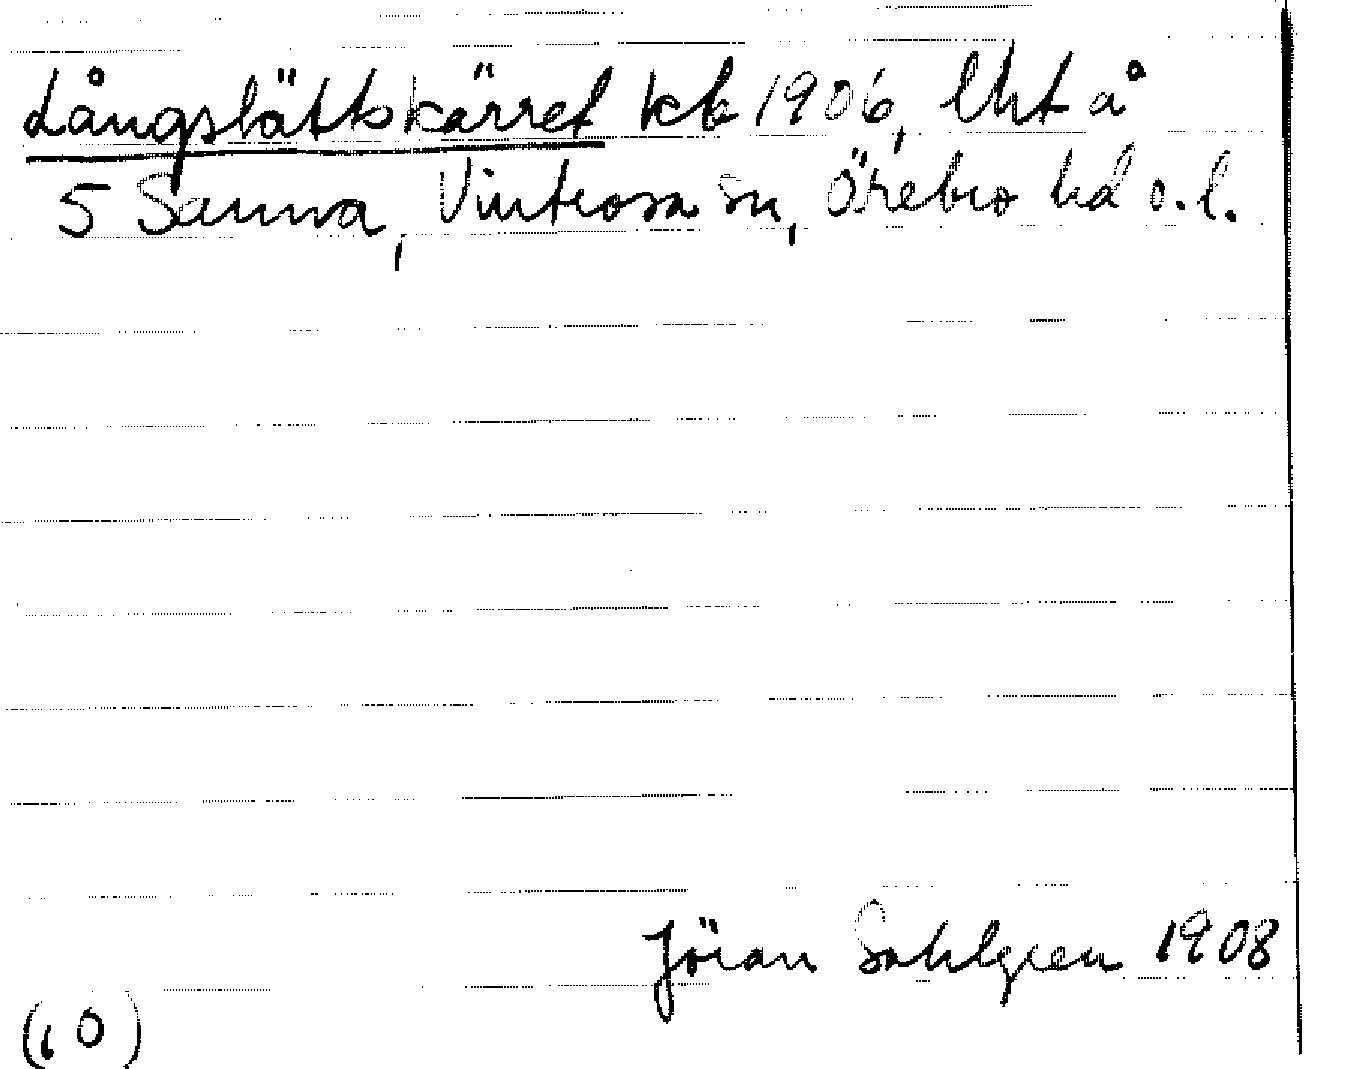 Långslättskärret kb 1906, Uht å
5 Sanna, Vintrosa sn, Örebro hd ö.l.
Jöran Sahlgren 1908
(10)